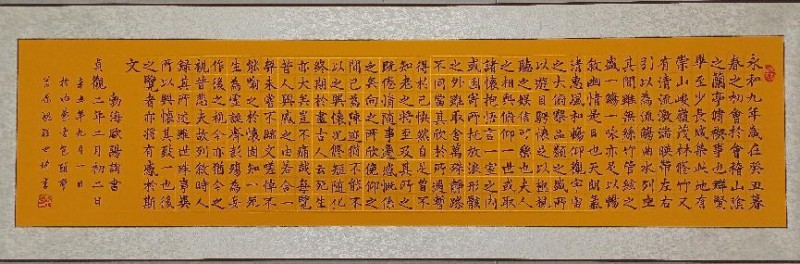 永和九年歲在癸丑暮
春之初會於會稽山陰
之蘭亭脩禊事也群賢
畢至少長咸集此地有
崇山峻嶺茂林脩竹又
有清流激湍暎帶左右
引以為流觴曲水列坐
其間雖無絲竹管絃之
盛一觴一詠亦足以暢
敘幽情是日也天朗氣
清惠風和暢仰觀宇宙
之大俯察品類之盛所
以遊目騁懷足以極視
聽之娛信可樂也夫人
之相與俯仰一世或取
諸懷抱悟言一室之內
或因寄所托放浪形骸
之外雖取舍萬殊靜躁
不同當其欣於所遇暫
得於己怏然自足曾不
知老之將至及其所之
既倦情隨事遷感慨係
之矣向之所欣俛仰之
間已為陳跡猶不能不
以之興懷況脩短隨化
終期於盡古人云死生
亦大矣豈不痛哉每覽
昔人興感之由若合一
契未嘗不臨文嗟悼不
能喻之於懷固知一死
生為虛誕齊彭殤為妄
作後之視今亦猶今之
視昔悲夫故列敘時人
錄其所述雖世殊事異
所以興懷其致一也後
之覽者亦將有感於斯
文
勃海歐陽詢書
貞觀二年二月初二日
辛丑年九月一日